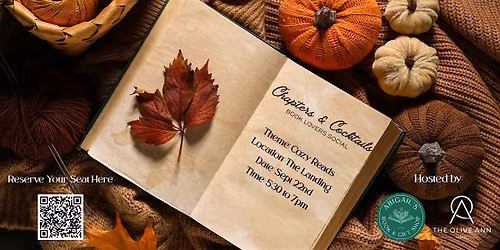 Chapters & Cocktails
BOOK LOVERS SOCIAL
Theme Cozy Reads
Location The Landing
Date Sept 22nd
Time 5:30 to 7pm
Reserve Your Seat Here
Hosted by
ABIGAIL'S
BOOK & GIFT
THE OLIVE ANN